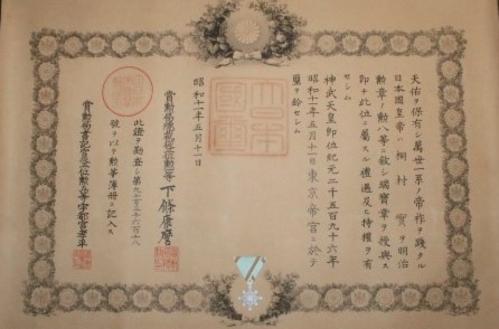 天佑ヲ保有シ萬世一系ノ帝祚ヲ踐タル
日本國皇帝ハ桐村實ヲ明治
勲章ノ勲八等ニ敘シ瑞寶章ヲ授與ス
即チ此位ニ屬スル禮遇及ヒ特權ヲ有
セシム
神武天皇即位紀元二千五百九十六年
昭和十一年五月十一日東京帝宮ニ於テ
璽ヲ鈐セシム
大日本國璽
昭和十一年五月十一日
賞勲局總裁 下條康麿
此證ヲ勘査シ第
號ヲ以テ勲等簿冊ニ記入ス
賞勲局書記官 宇都宮孝平